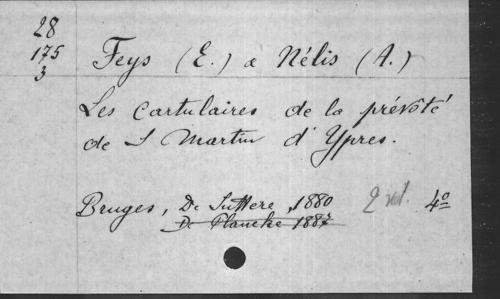 28
175
3
Feys (E.) & Nélis (A.)
Les cartulaires de la prévôté
de S Martin d'Ypres.
Bruges, De Zuttere, 1880 2 vol. 4º
De Plancke 1887